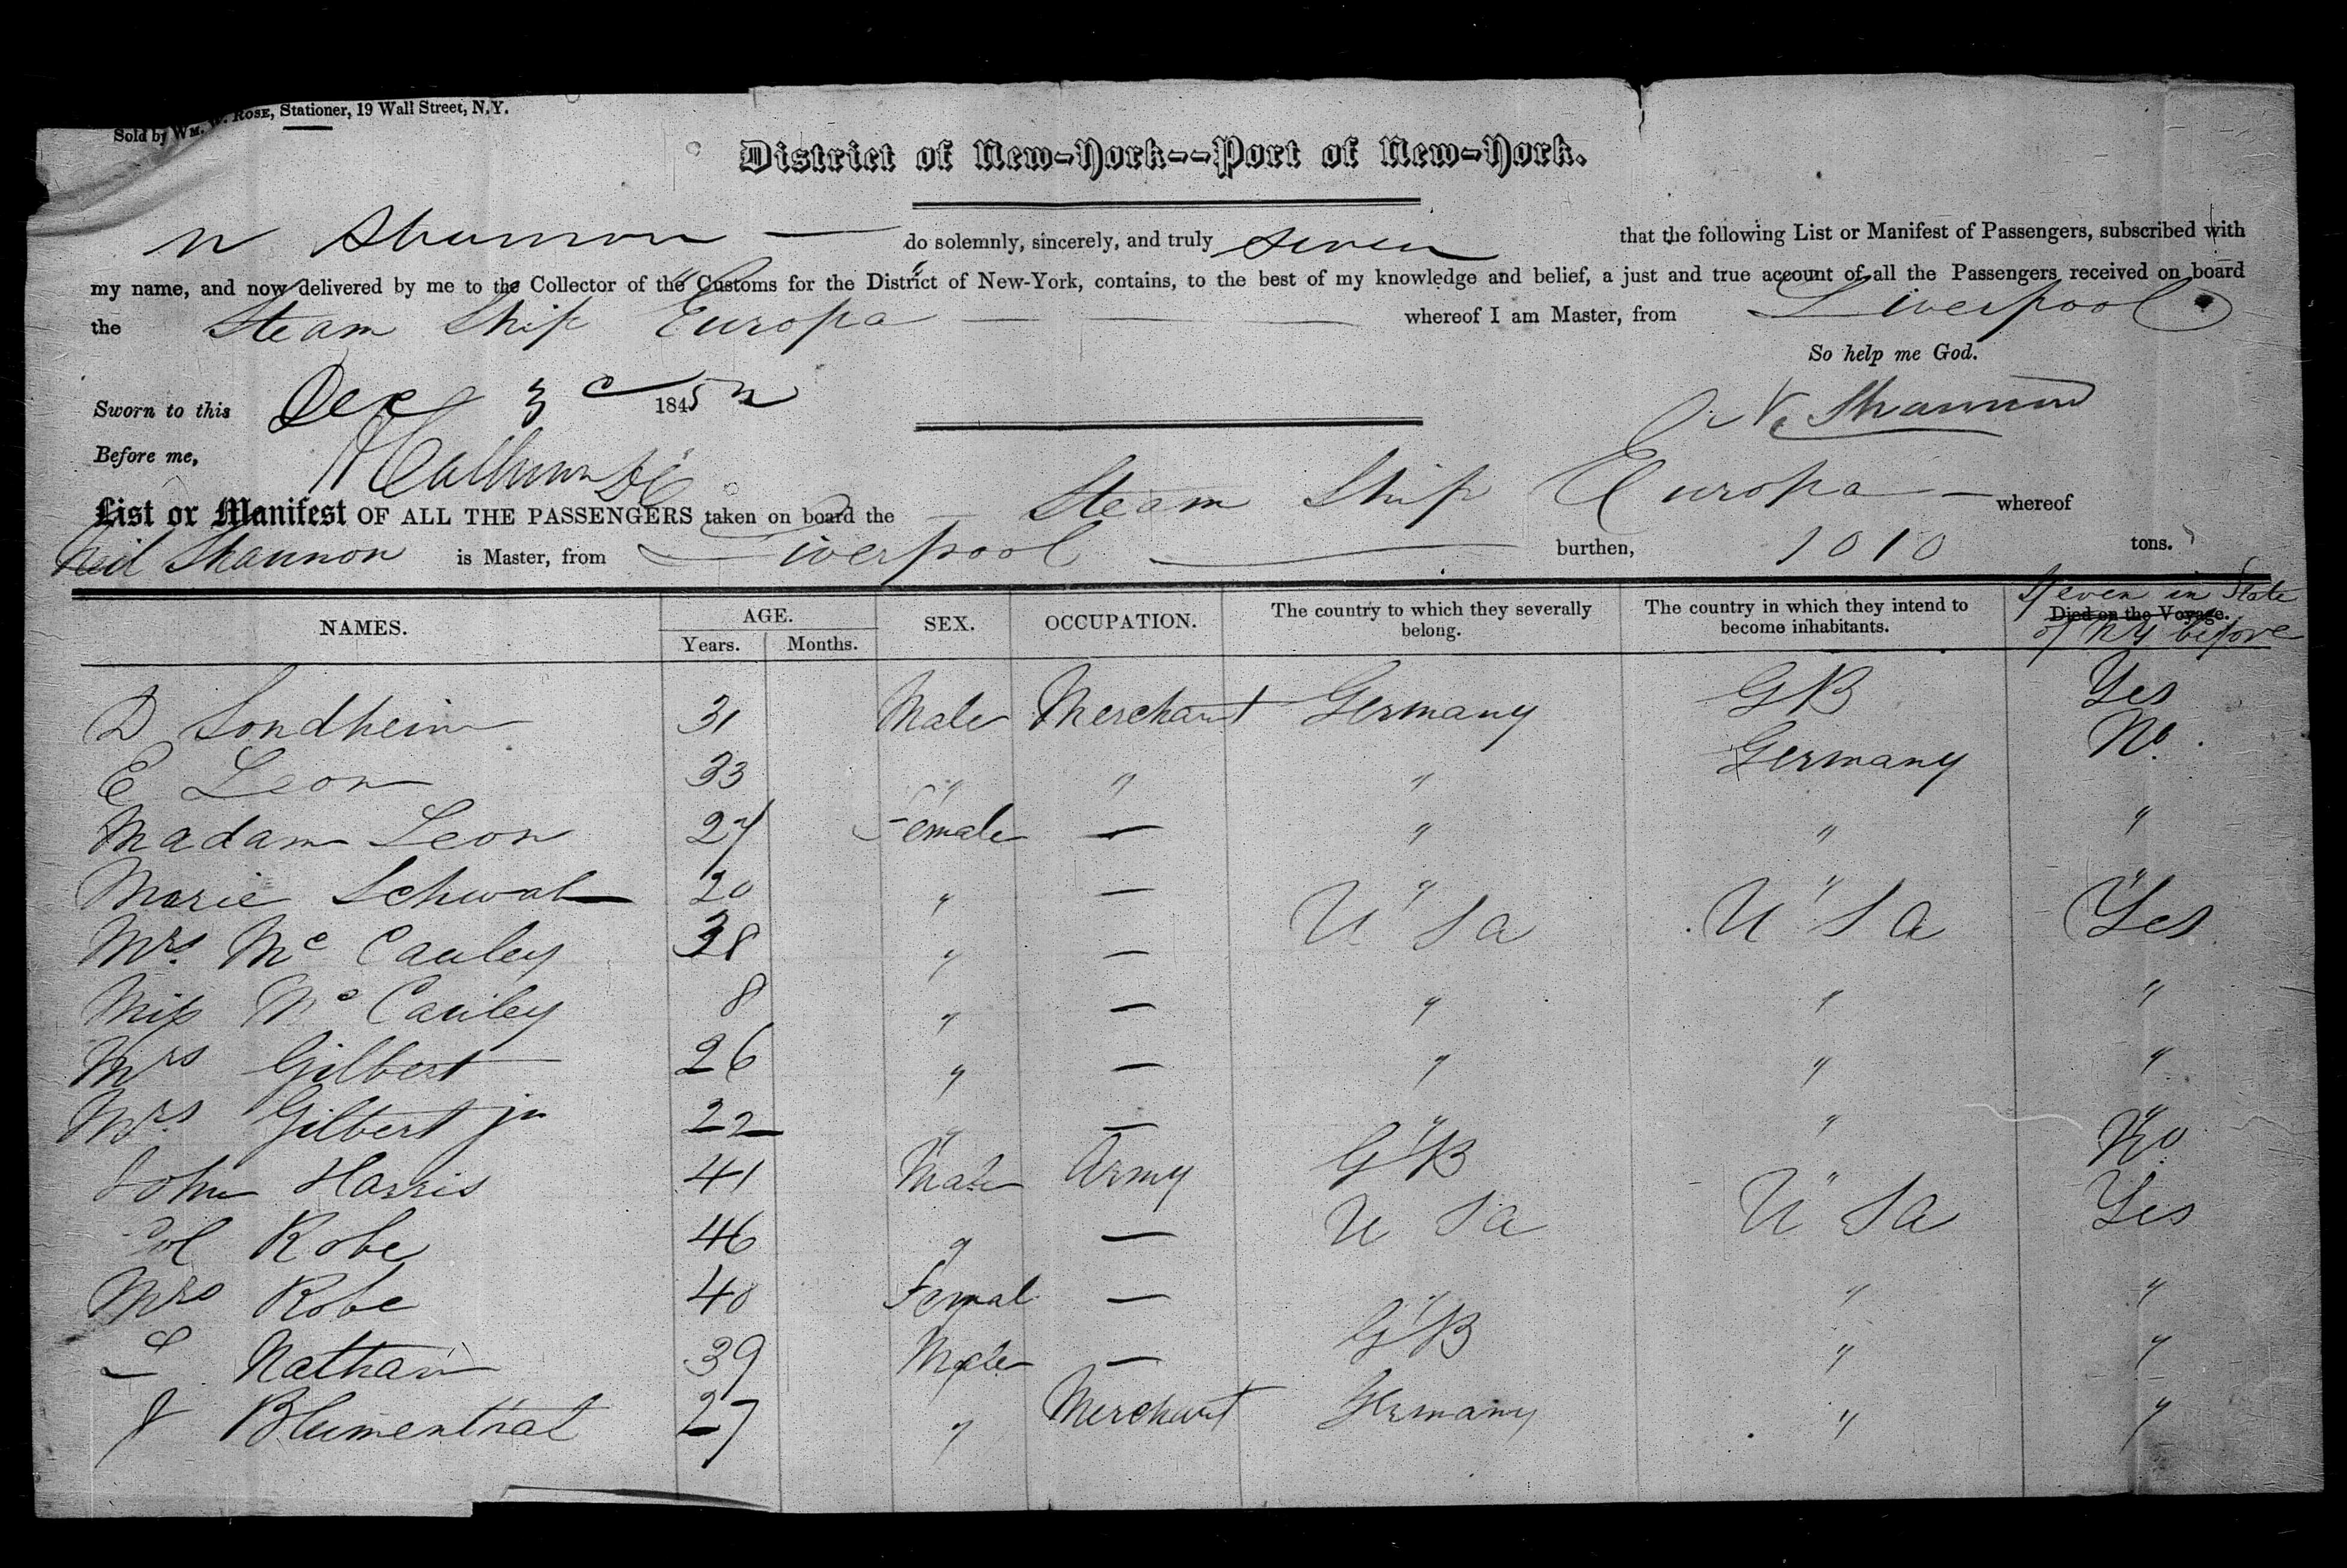 Sold by WM. W. ROSE, Stationer, 19 Wall Street, N.Y.
District of New-York--Port of New-York.
N Shannon do solemnly, sincerely, and truly swear that the following List or Manifest of Passengers, subscribed with
my name, and now delivered by me to the Collector of the Customs for the District of New-York, contains, to the best of my knowledge and belief, a just and true account of all the Passengers received on board
the Steam Ship Europa whereof I am Master, from Liverpool
So help me God.
Sworn to this Dec 3 1852
N. Shannon
Before me,
List or Manifest OF ALL THE PASSENGERS taken on board the Steam Ship Europa whereof
Neil Shannon is Master, from Liverpool burthen, 1010 tons.
NAMES. AGE. Years. Months. SEX. OCCUPATION. The country to which they severally belong. The country in which they intend to become inhabitants. Died on the Voyage. If ever in State of NY before
D Sondheim 31 Male Merchant Germany GB Yes
E Leon 33 " " " Germany No.
Madam Leon 27 Female — " " "
Marie Schwab 20 " — " " "
Mrs. Mc Cauley 38 " — U S a U S a Yes
Miss Mc Cauley 8 " — " " "
Mrs Gilbert 26 " — " " "
Mrs. Gilbert jn 22 " — " " "
John Harris 41 Male Army GB " No
Col Robe 46 " — U S a U S a Yes
Mrs Robe 40 Femal — " " "
L Nathan 39 Male — GB " "
J Blumenthal 27 " Merchant Germany " "